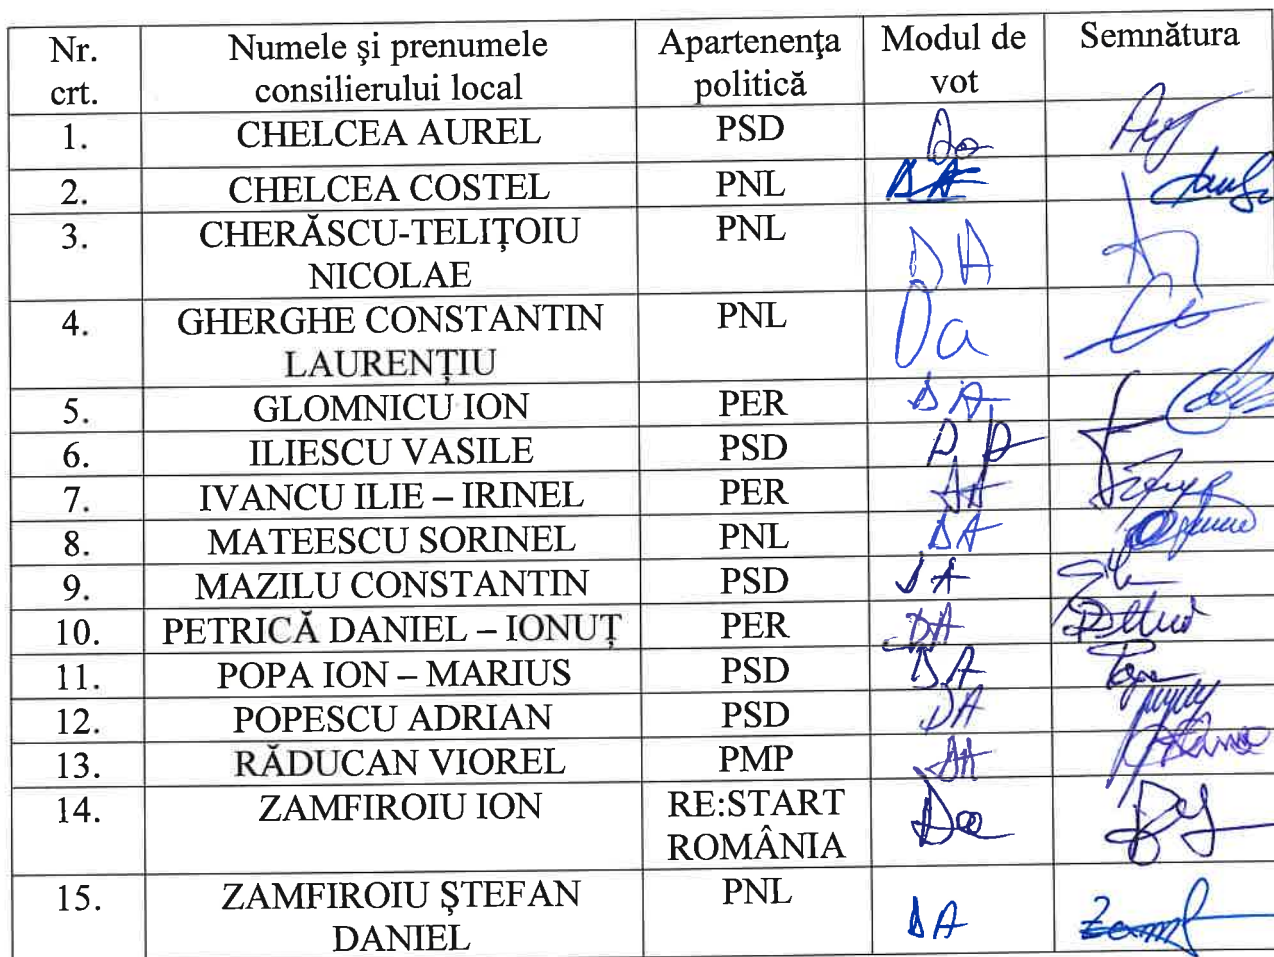 Nr. crt. Numele şi prenumele consilierului local Apartenenţa politică Modul de vot Semnătura
1. CHELCEA AUREL PSD Da
2. CHELCEA COSTEL PNL DA
3. CHERĂSCU-TELIŢOIU NICOLAE PNL DA
4. GHERGHE CONSTANTIN LAURENŢIU PNL Da
5. GLOMNICU ION PER DA
6. ILIESCU VASILE PSD DA
7. IVANCU ILIE – IRINEL PER DA
8. MATEESCU SORINEL PNL DA
9. MAZILU CONSTANTIN PSD DA
10. PETRICĂ DANIEL – IONUŢ PER DA
11. POPA ION – MARIUS PSD DA
12. POPESCU ADRIAN PSD DA
13. RĂDUCAN VIOREL PMP DA
14. ZAMFIROIU ION RE:START ROMÂNIA Da
15. ZAMFIROIU ŞTEFAN DANIEL PNL DA